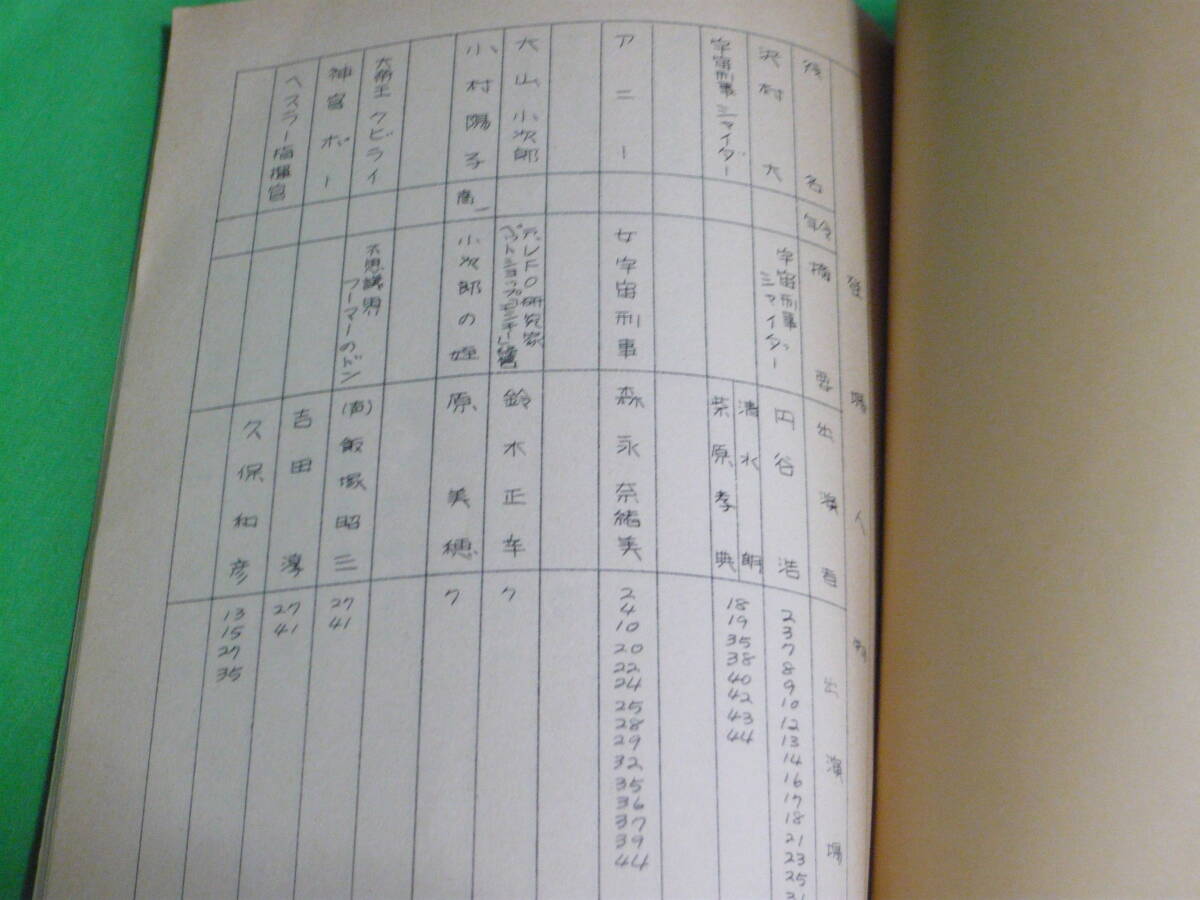 登場人物
役名
年令
摘要
出演者
出演場
沢村大
宇宙刑事シャイダー
円谷浩
2
3
7
8
9
10
12
13
14
16
17
18
21
23
25
宇宙刑事シャイダー
清水朗
柴原孝典
18
19
35
38
40
42
43
44
アニー
女宇宙刑事
森永奈緒美
2
4
10
20
22
24
25
28
29
32
35
36
37
39
44
大山小次郎
UFO研究家
鈴木正幸
7
小村陽子
高一
小次郎の姪
原美穂
7
大帝王クビライ
不思議界
フーマーのドン
(声)飯塚昭三
27
41
神官ポー
吉田淳
27
41
ヘスラー指揮官
久保和彦
13
15
27
35